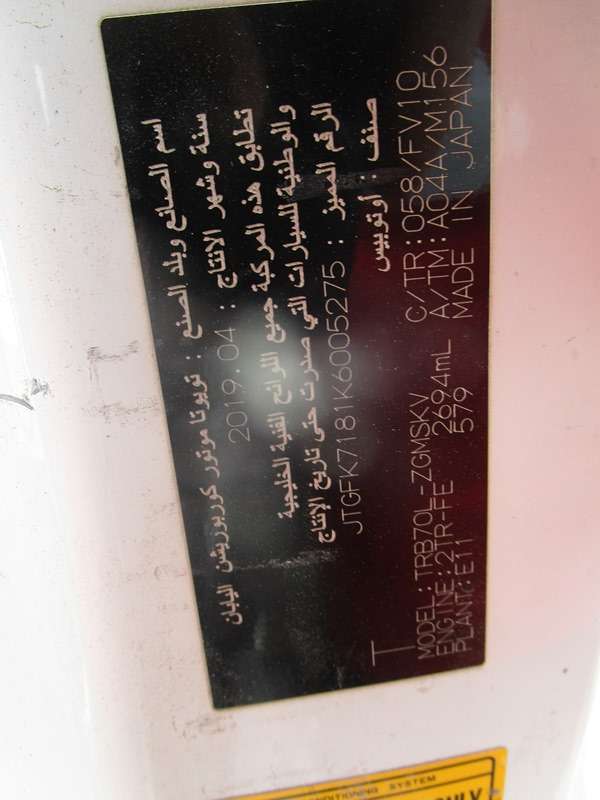 اسم الصانع وبلد الصنع : تويوتا موتور كوربوريشن اليابان
سنة وشهر الانتاج : 2019.04
تطابق هذه المركبة جميع اللوائح الفنية الخليجية
والوطنية للسيارات التي صدرت حتى تاريخ الإنتاج
الرقم المميز : JTGFK7181K6005275
صنف : أوتوبيس
T
MODEL: TRB70L-ZGMSKV C/TR:058/FV10
ENGINE:2TR-FE 2694mL A/TM:A04A/M156
PLANT:E11 579 MADE IN JAPAN
CONDITIONING SYSTEM
ONLY